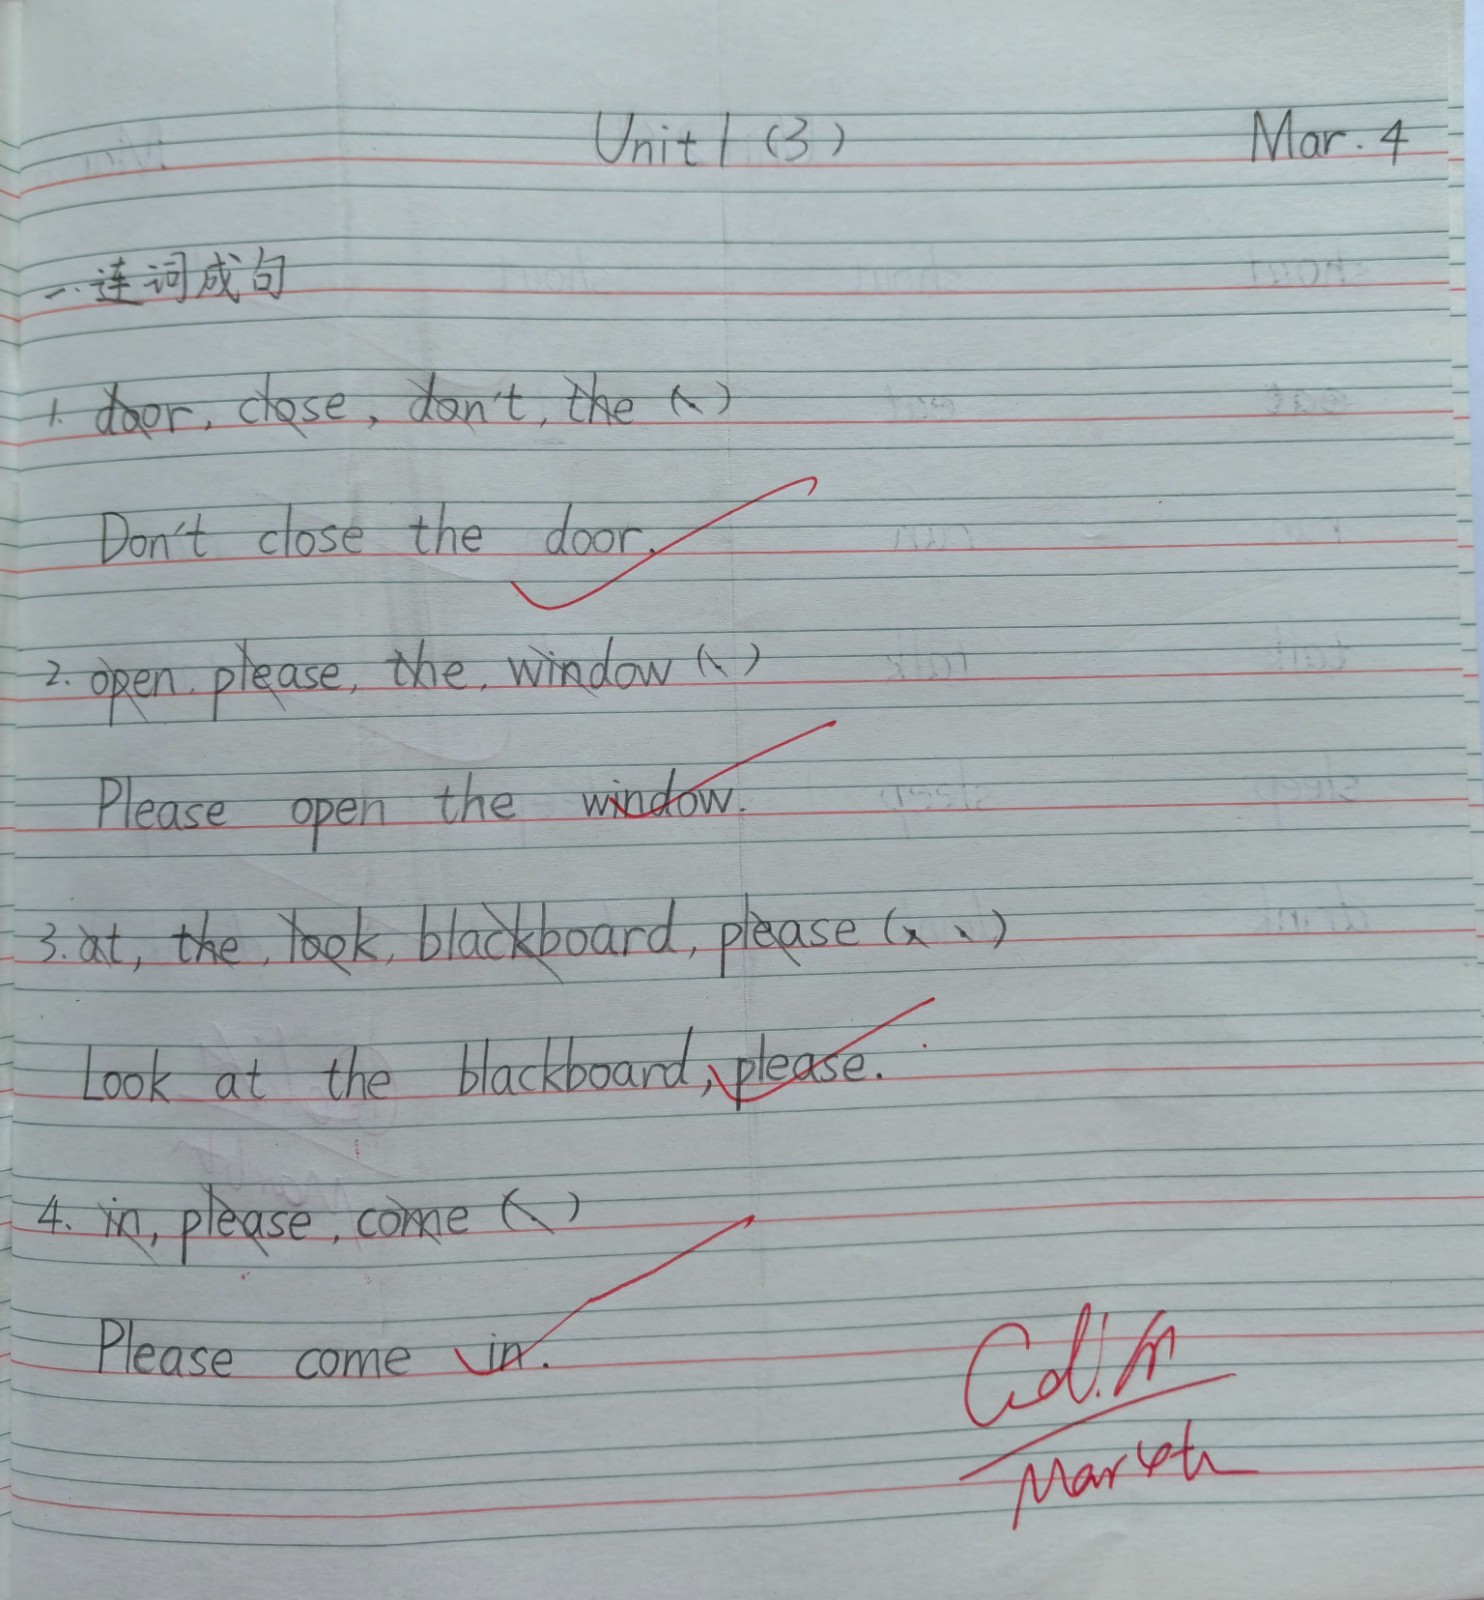 Unit 1 (3) Mar. 4
一. 连词成句
1. door, close, don't, the (.)
Don't close the door.
2. open, please, the, window (.)
Please open the window.
3. at, the, look, blackboard, please (, .)
Look at the blackboard, please.
4. in, please, come (.)
Please come in.
Mar 4th